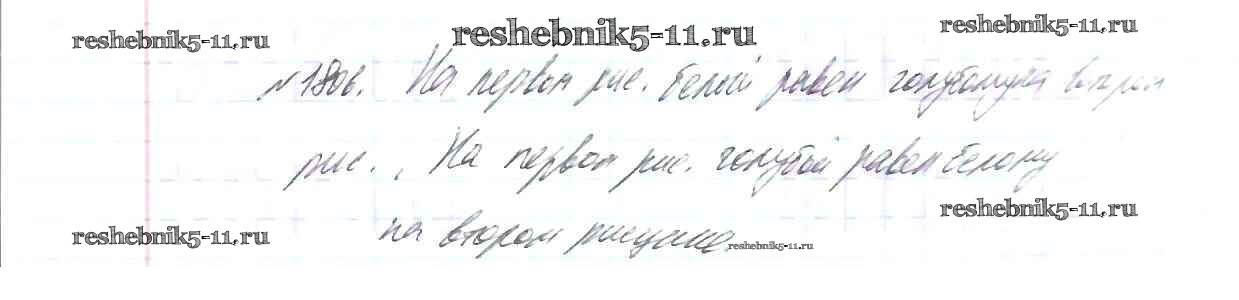 reshebnik5-11.ru reshebnik5-11.ru reshebnik5-11.ru
№1806. На первом рис. белый равен голубому на втором
рис., На первом рис. голубой равен белому
reshebnik5-11.ru reshebnik5-11.ru
на втором рисунке
reshebnik5-11.ru